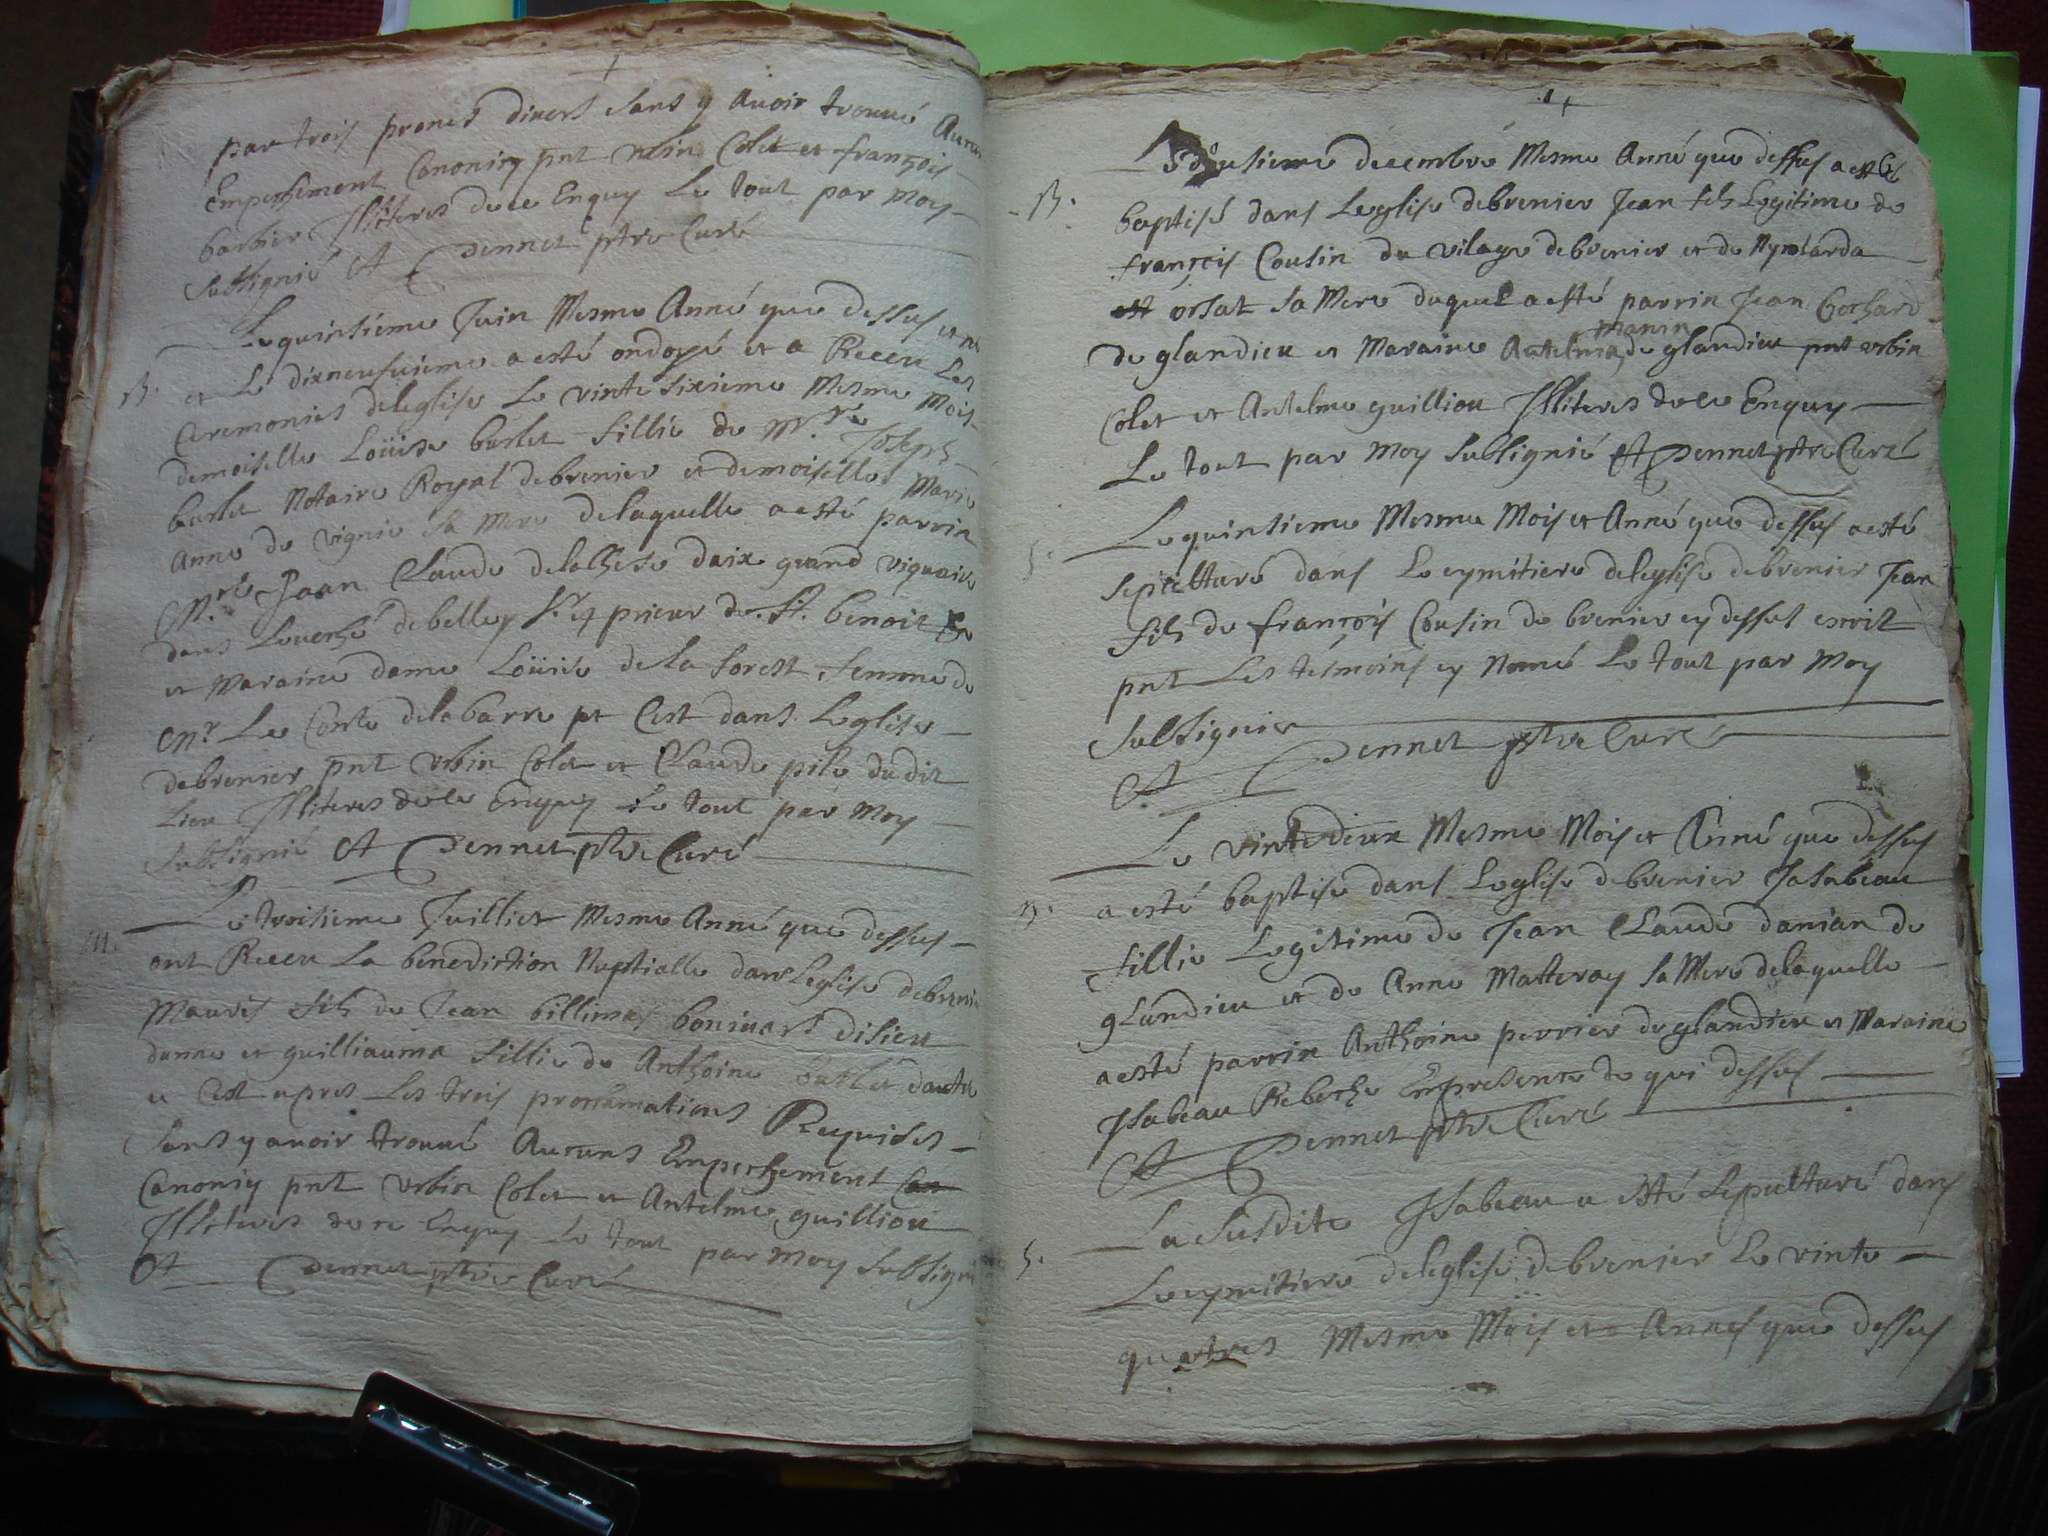 par trois prones divers sans y avoir trouvé Aucun
Empeschement Canoniq pnt urbin Colet et françois
barbier Illiteres de ce Enquy Le tout par moy
subsignié A Dennet ptre Curé
Le quinsieme Juin Mesme Anné que dessus et né
B. et Le dixneufvieme a esté ondoyé et a Receu Les
Ceremonies de leglise Le vinte sixieme Mesme Mois
demoiselle Loüise burlet fillie de Mre Joseph
burlet Notaire Royal de brenier et demoiselle Marie
Anne de vignie sa Mere de laquelle a esté parrin
Mre Jean Claude dela daix grand viquaire
dans Levesché de belley Sr et prieur de St. benoit
et Maraine dame Loüise de la forest femme de
Mr Le Conte de la barre pt Cest dans Leglise
de brenier pnt urbin Colet et Claude pile du dit
Lieu Illiteres de ce Enquy Le tout par Moy
subsignié A Dennet ptre Curé
Le troisieme Juilliet Mesme Anné que dessus
M. ont Receu La benediction Nuptialle dans Leglise de brenie
Mauris fils de Jean billemas bonivard disieu
danne et guilliauma fillie de Anthoine burlet dautre
et Cest apres Les trois proclamations Requises
sans y avoir trouvé Aucuns Empeschement
Canoniq pnt urbin Colet et Antelme guilliou
Illiteres de ce Enquy Le tout par moy subsigni
A Dennet ptre Curé
Le dousieme decembre Mesme Anné que dessus a esté
B. baptisé dans Leglise de brenier Jean fils Legitime de
françois Cousin du vilage de brenier et de
orsat sa Mere duquel a esté parrin Jean Cochard
manin
de glandieu et Maraine Antelmia de glandieu pnt urbin
Colet et Antelme guilliou Illiteres de ce Enquy
Le tout par moy subsignié A Dennet ptre Curé
Le quinsieme Mesme Mois et Anné que dessus a esté
S. sepculturé dans Le cymitiere de leglise de brenier Jean
fils de françois Cousin de brenier cy dessus escrit
pnt Les tesmoins cy Nomé Le tout par Moy
subsignier
A Dennet ptre Curé
Le vinte deux Mesme Mois et Anné que dessus
B. a esté baptise dans Leglise de brenier Isabeau
fillie Legitime de Jean Claude danian de
glandieu et de Anne Matteray sa Mere de laquelle
a esté parrin Anthoine perrier de glandieu et Maraine
Isabeau Reboche En presence de qui dessus
A Dennet ptre Curé
La susdite Isabeau a esté sepulturé dans
S. Le cymitiere de leglise de brenier Le vinte
quatres Mesme Mois et Annes que dessus